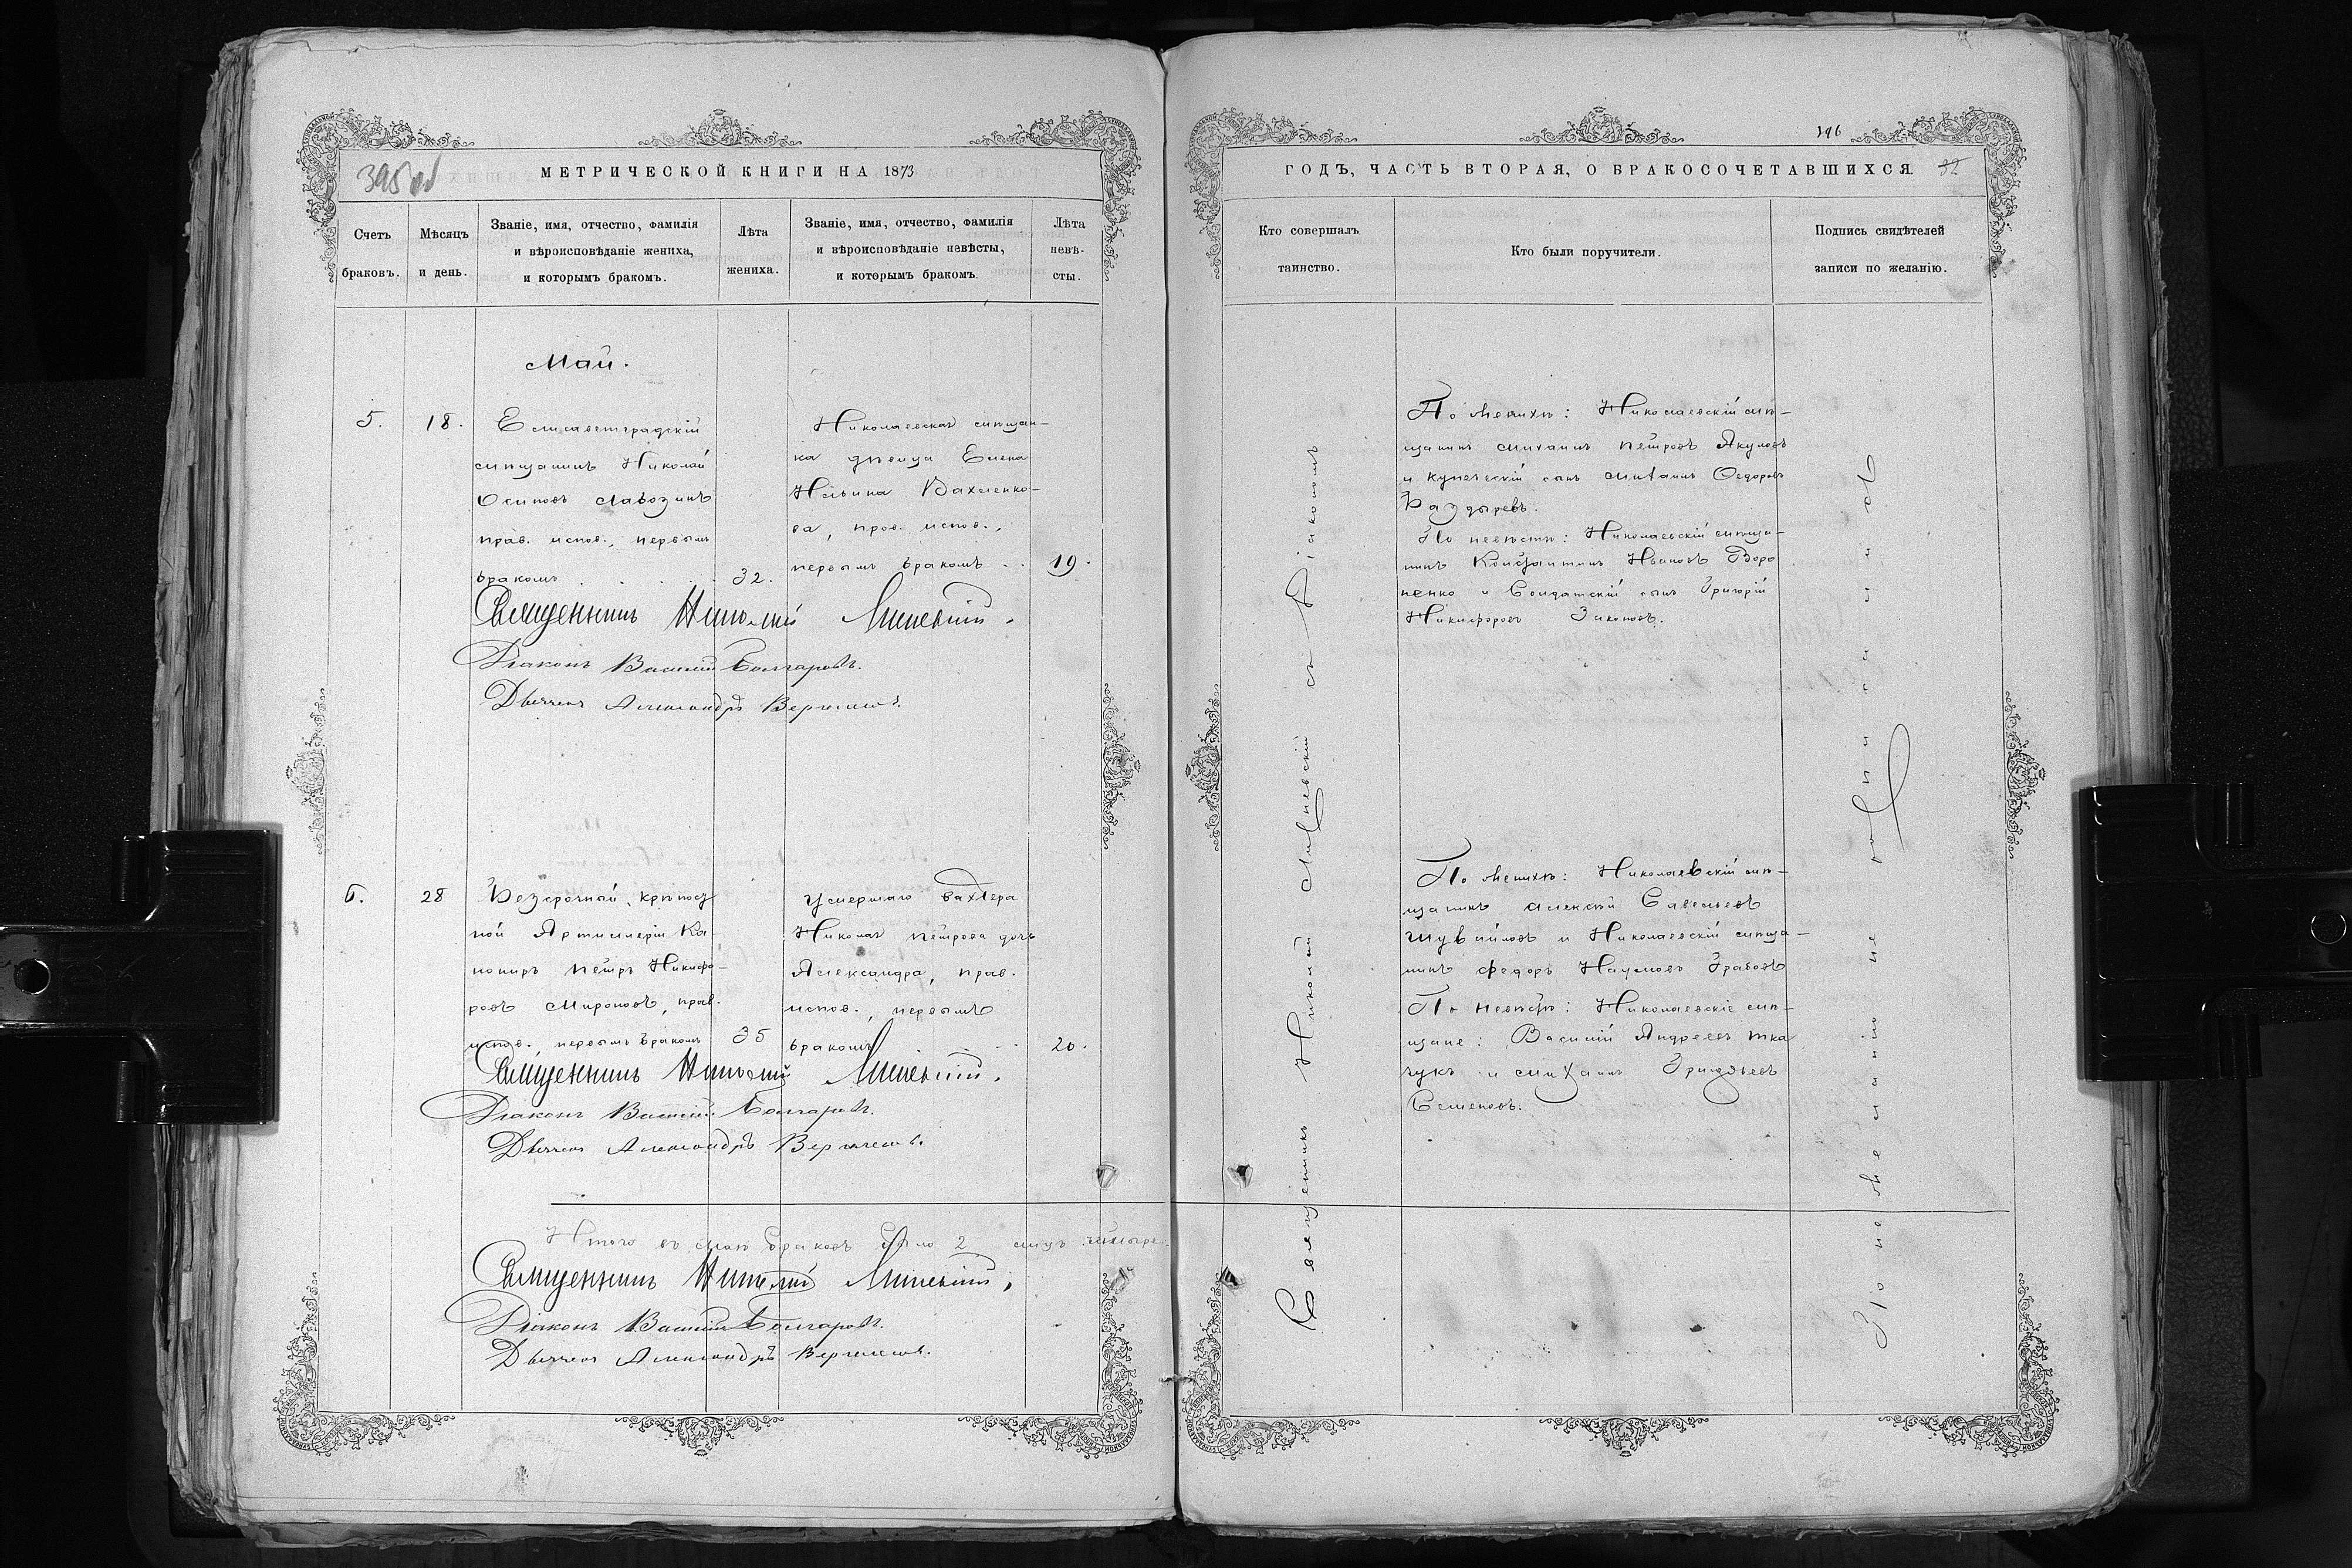 395 об
МЕТРИЧЕСКОЙ КНИГИ НА 1873
Счетъ браковъ.
Мѣсяцъ и день.
Званіе, имя, отчество, фамилія
и вѣроисповѣданіе жениха,
и которымъ бракомъ.
Лѣта
жениха.
Званіе, имя, отчество, фамилія
и вѣроисповѣданіе невѣсты,
и которымъ бракомъ.
Лѣта
невѣ-
сты.
Май.
5.
18.
Елисаветградскій
мѣщанинъ Николай
Осиповъ Лавозинъ
прав. испов., первымъ
бракомъ . . . .
32.
Николаевская мѣщан-
ка дѣвица Елена
Ильина Вахменко-
ва, прав. испов.,
первымъ бракомъ . .
19.
Священникъ Николай
Діаконъ Василій Болгаровъ.
Дьячекъ Александръ
6.
28
Безсрочный, крѣпост
ной Артиллеріи Ка-
нониръ Петръ Никифо-
ровъ Мироновъ, прав.
испов. первымъ бракомъ
35
Умершаго вахтера
Николая Петрова дочь
Александра, прав.
испов., первымъ
бракомъ . . .
20.
Священникъ Николай
Діаконъ Василій Болгаровъ.
Дьячекъ Александръ
Итого въ маѣ браковъ было 2
Священникъ Николай
Діаконъ Василій Болгаровъ.
Дьячекъ Александръ
196
32
ГОДЪ, ЧАСТЬ ВТОРАЯ, О БРАКОСОЧЕТАВШИХСЯ.
Кто совершалъ
таинство.
Кто были поручители.
Подпись свидѣтелей
записи по желанію.
Священникъ Николай съ Діакономъ
По женихѣ: Николаевскій мѣ-
щанинъ Михаилъ Петровъ Якуловъ
и купеческій сынъ Михаилъ Ѳедоровъ
Баздыревъ.
По невѣстѣ: Николаевскій мѣща-
нинъ Константинъ Ивановъ Доро
ненко и Солдатскій сынъ Григорій
Никифоровъ Законовъ.
По женихѣ: Николаевскій мѣ-
щанинъ Алексѣй Савельевъ
Шувайловъ и Николаевскій мѣща-
нинъ Федоръ Наумовъ Грабовъ
По невѣстѣ: Николаевскіе мѣ-
щане: Василій Андреевъ Тка
чукъ и Михаилъ Григорьевъ
Семеновъ.
По нежеланію не